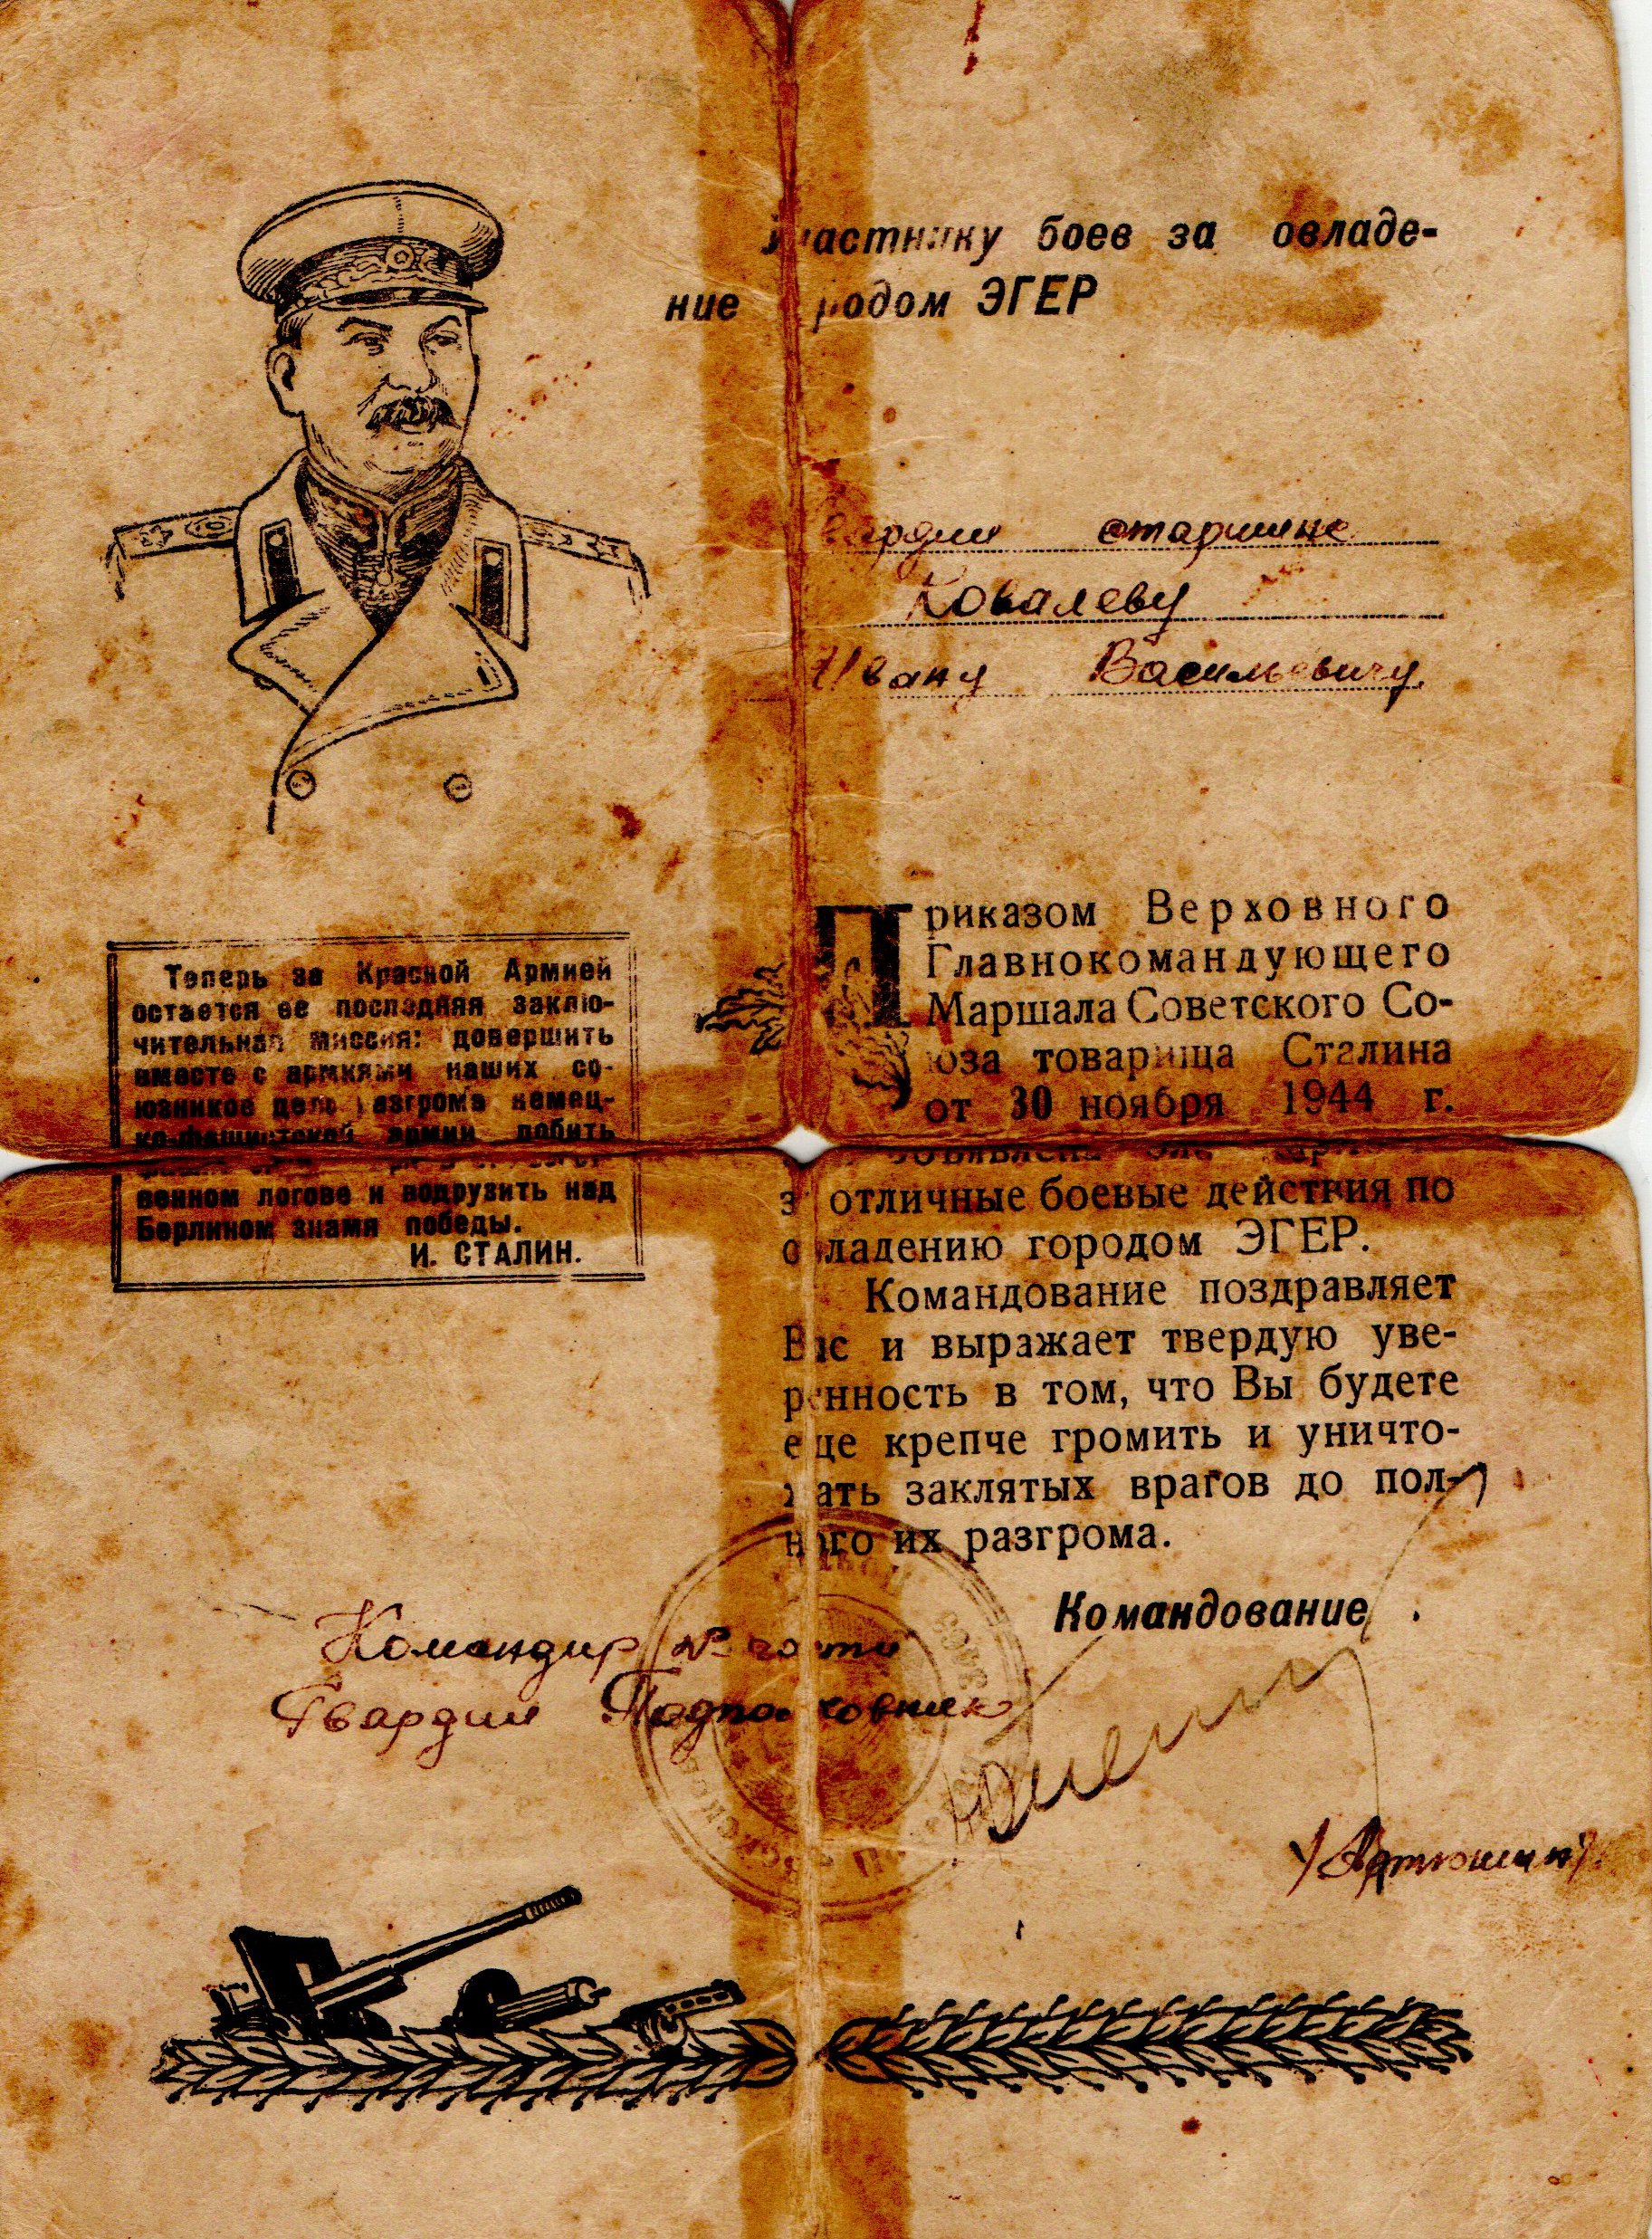 Участнику боев за овладе-
ние городом ЭГЕР
гвардии старшине
Ковалеву
Ивану Васильевичу
Теперь за Красной Армией
остается ее последняя заклю-
чительная миссия: довершить
вместе с армиями наших со-
юзников дело разгрома немец-
ко-фашистской армии добить
венном логове и водрузить над
Берлином знамя победы.
И. СТАЛИН.
Приказом Верховного
Главнокомандующего
Маршала Советского Со-
юза товарища Сталина
от 30 ноября 1944 г.
объявлена
за отличные боевые действия по
овладению городом ЭГЕР.
Командование поздравляет
Вас и выражает твердую уве-
ренность в том, что Вы будете
еще крепче громить и уничто-
жать заклятых врагов до пол-
ного их разгрома.
Командование
Командир № части
Гвардии Подполковник
/Артюшин/